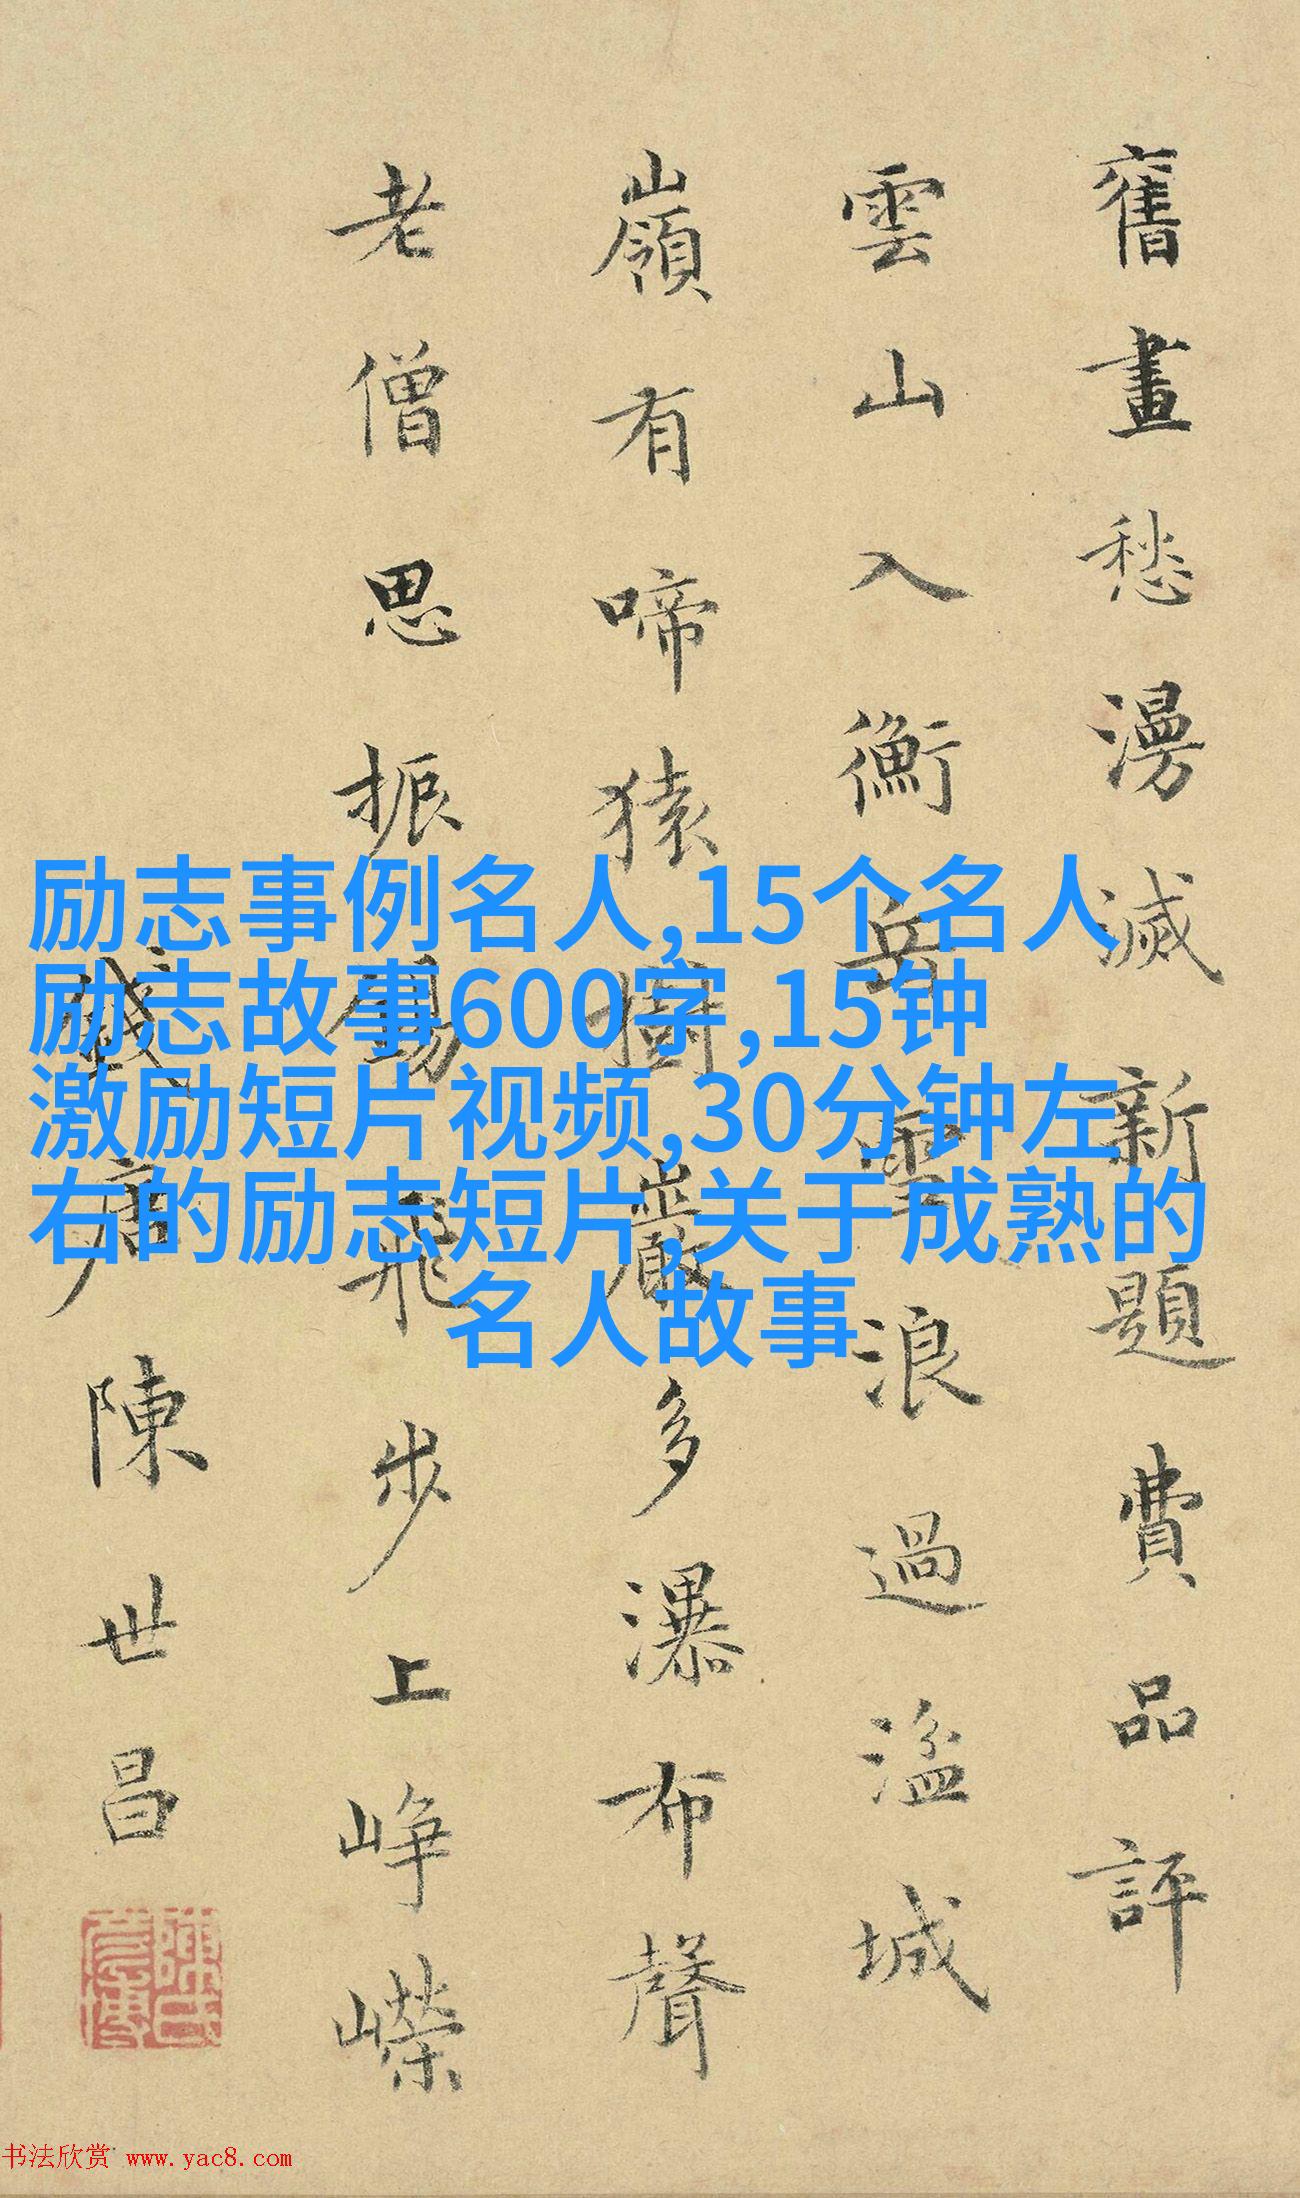 舊畫愁漫滅新題費品評
雲山入衡岳雪浪過湓城
嶺有啼猿樹巖多瀑布聲
老僧思振錫飛步上崢嶸
錢唐陳世昌
励志事例名人,15个名人
励志故事600字,15钟
激励短片视频,30分钟左
右的励志短片,关于成熟的
名人故事
书法欣赏 www.yac8.com